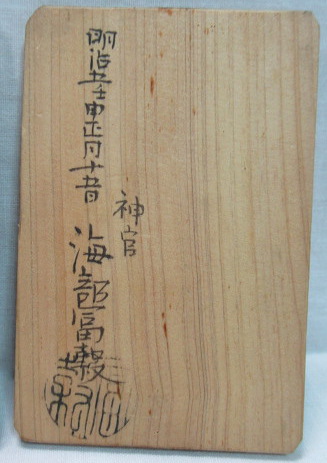 明治五壬申正月十五日
神官
海部富